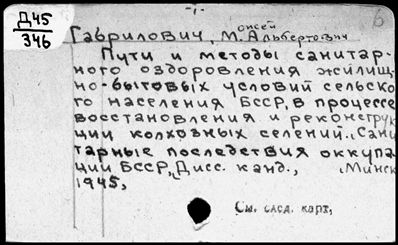 Д45
346
-1-
б
оисей
Гаврилович, М. Альбертович
Пути и методы санитар-
ного оздоровления жилищ-
но-бытовых условий сельско
го населения БССР, в процессе
восстановления и реконструк
ции колхозных селений. „Сани
тарные последствия оккупа
ции БССР„ Дисс. канд., Минск
1945,
См. след. карт,